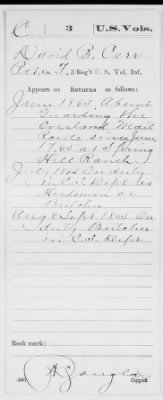 C 3 U.S. Vols.
David B. Carr
Pvt. Co. F, 3 Reg't U. S. Vol. Inf.
Appears on Returns as follows:
June 1865 Absent
Guarding the
Overland Mail
Route since June
17, 65 at Spring
Hill Ranch
July 1865 On duty
in C.S. Dept as
Herdsman or
Butcher
Aug & Sept 1865 On
duty Butcher
in C.S. Dept.
Book mark:
Copyist.